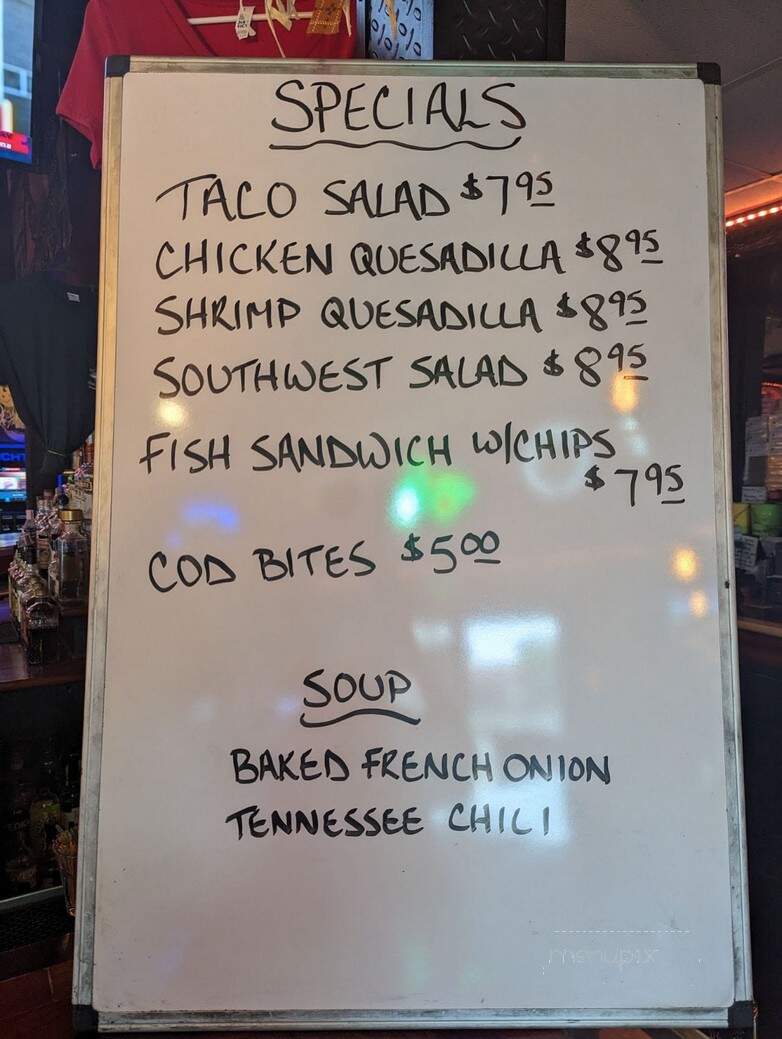 SPECIALS
TACO SALAD $7.95
CHICKEN QUESADILLA $8.95
SHRIMP QUESADILLA $8.95
SOUTHWEST SALAD $8.95
FISH SANDWICH W/CHIPS
$7.95
COD BITES $5.00
SOUP
BAKED FRENCH ONION
TENNESSEE CHILI
menupix